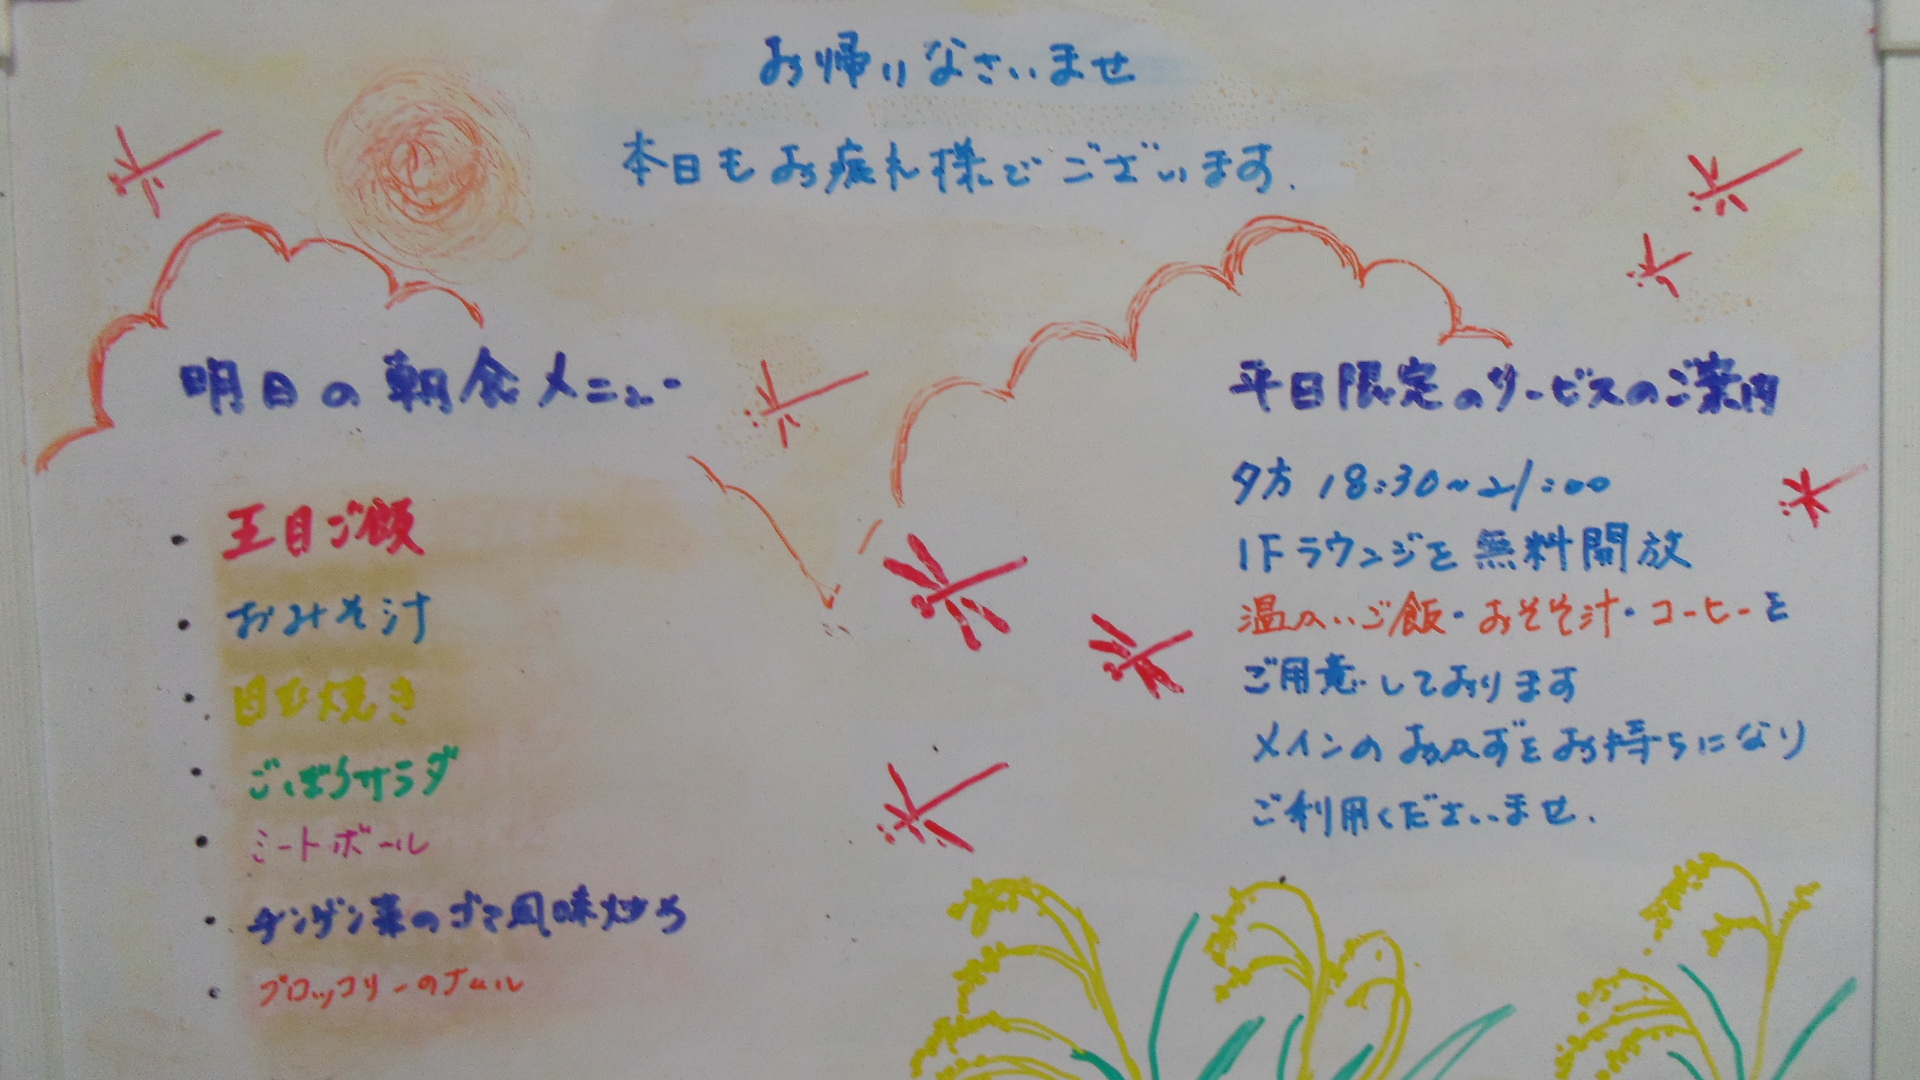 お帰りなさいませ
本日もお疲れ様でございます.
明日の朝食メニュー
・五目ご飯
・おみそ汁
・目玉焼き
・ごぼうサラダ
・ミートボール
・チンゲン菜のゴマ風味炒め
・ブロッコリーの
平日限定のサービスのご案内
夕方 18:30~21:00
1Fラウンジを無料開放
温かいご飯・おみそ汁・コーヒーを
ご用意しております
メインのおかずをお持ちになり
ご利用くださいませ.